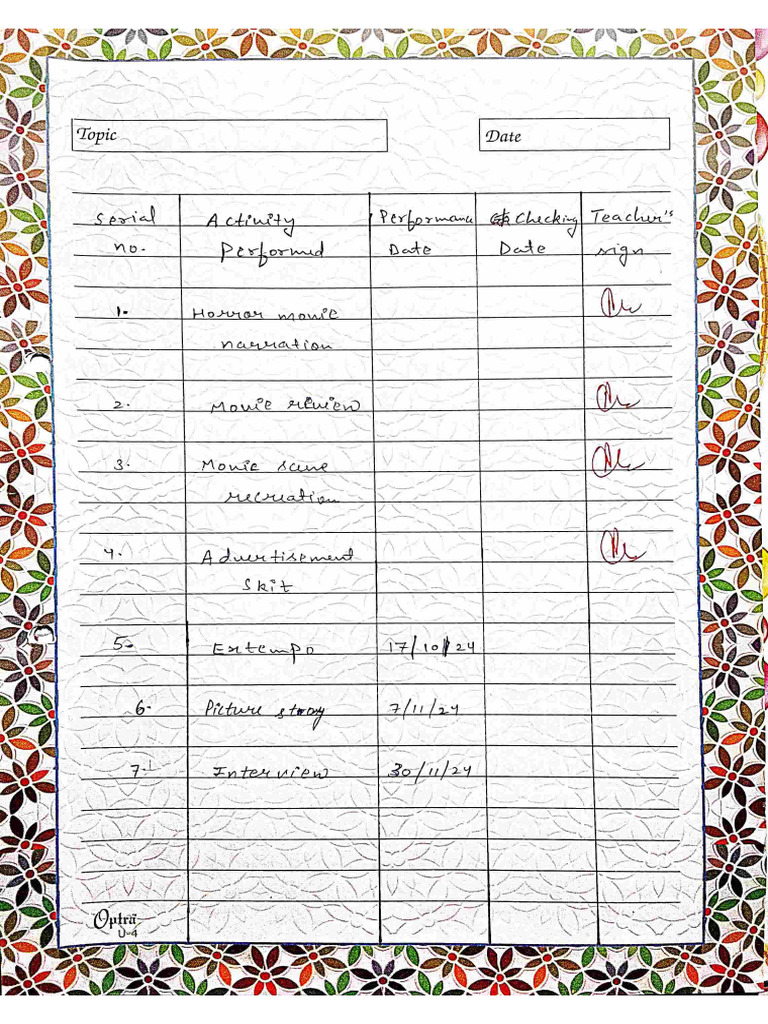 Topic Date
Serial Activity Performance Checking Teacher's
no. Performed Date Date sign
1. Horror movie
narration
2. Movie review
3. Movie scene
recreation
4. Advertisement
Skit
5. Extempo 17/10/24
6. Picture story 7/11/24
7. Interview 30/11/24
Optra
U-4